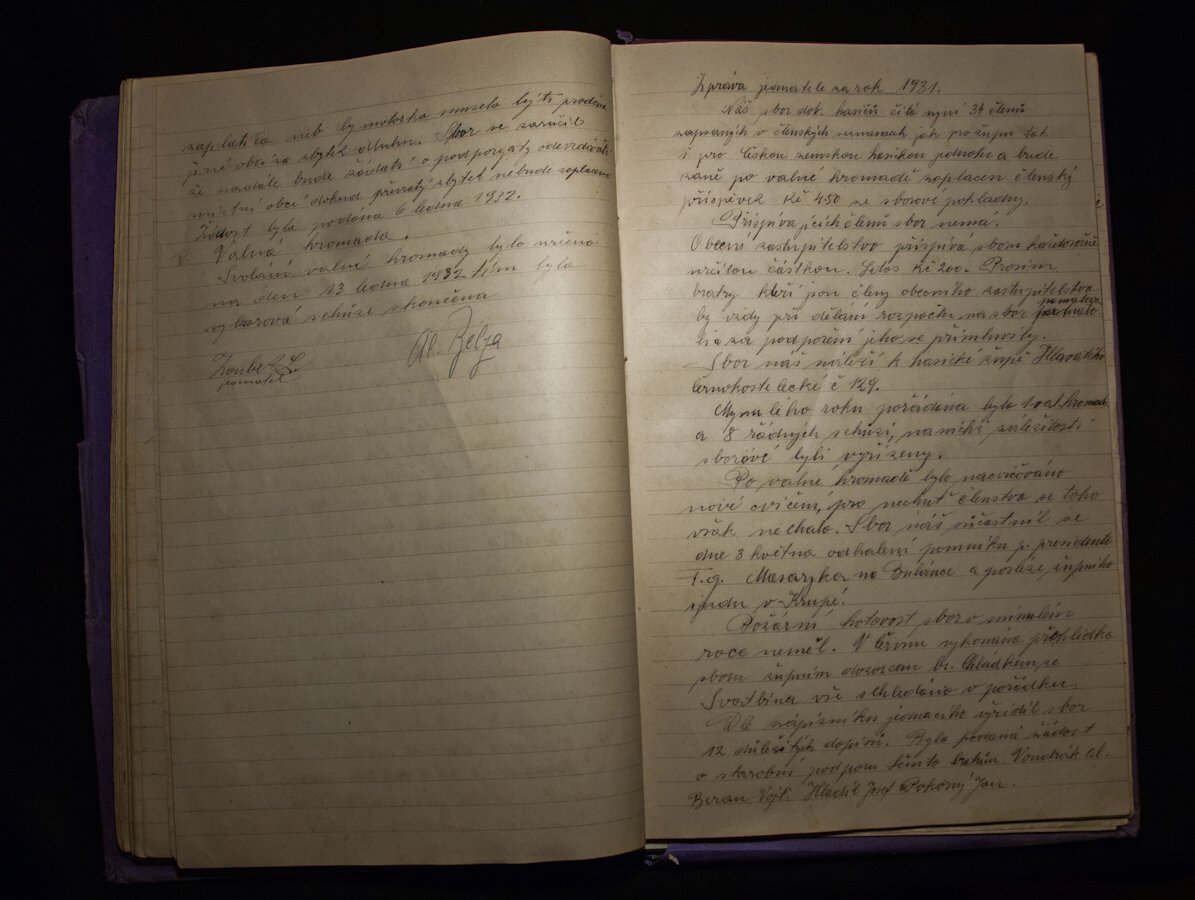 zaplatila neb by motorka musela býti prodána
jiné obci za zbytek dluhu. Sbor se zaručil
že nadále bude žádati o podpory a ty odevzdávati
místní obci dokud převzatý zbytek nebude zaplacen
Žádost byla podána 6 ledna 1932.
V. Valná hromada.
Svolání valné hromady bylo určeno
na den 13 ledna 1932 tím byla
výborová schůze skončena
Al. Bělza
jednatel
Zpráva jednatele za rok 1931.
Náš sbor dob. hasičů čítá nyní 34 členů
zapsaných v členských seznamech jak pro župu tak
i pro Českou zemskou hasičkou jednotu a bude
zaně po valné hromadě zaplacen členský
příspěvek Kč 450 ze sborové pokladny.
Přispívajících členů sbor nemá.
Obecní zastupitelstvo přispívá sboru každoročně
určitou částkou. Letos Kč 200. Prosím
bratry kteří jsou členy obecního zastupitelstva
by vždy při dělání rozpočtu na sbor pamatova
li a za podpoření jeho se přimluvily.
Sbor náš náleží k hasické župě Hlavatého
černokostelecké č 129.
Mynulého roku pořádána byla 1 val. hromada
a 8 řádných schůzí, na nichž záležitosti
sborové byli vyřízeny.
Po valné hromadě bylo nacvičováno
nové cvičení, pro nechuť členstva se toho
však nechalo. Sbor náš súčastnil se
dne 3 května odhalení pomníku p. presidenta
T.g. Masaryka na Bulánce a posléze župního
sjezdu v Krupé.
Požární hotovost sbor v minulém
roce neměl. V červnu vykonána přehlídka
sboru župním dozorcem br. Chládkem ze
Svatbína vše shledáno v pořádku.
Dle zápisníku jednacího vyřídil sbor
12 důležitých dopisů. Byla podaná žádost
o starobní podporu těmto bratrům. Vondrák Al.
Beran Vojt. Hladík Josef Pokorný Jan.